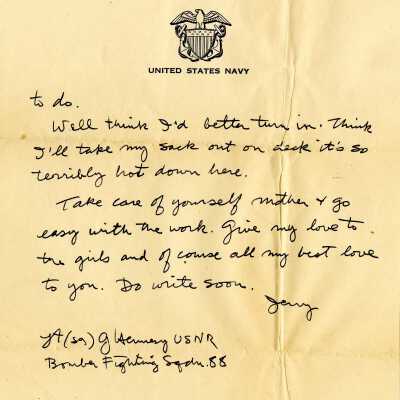 UNITED STATES NAVY
to do.
Well think I'd better turn in. Think
I'll take my sack out on deck it's so
terribly hot down here.
Take care of yourself mother & go
easy with the work. Give my love to
the girls and of course all my best love
to you. Do write soon.
Jerry
USNR
Bomber Fighting Sqdn. 88